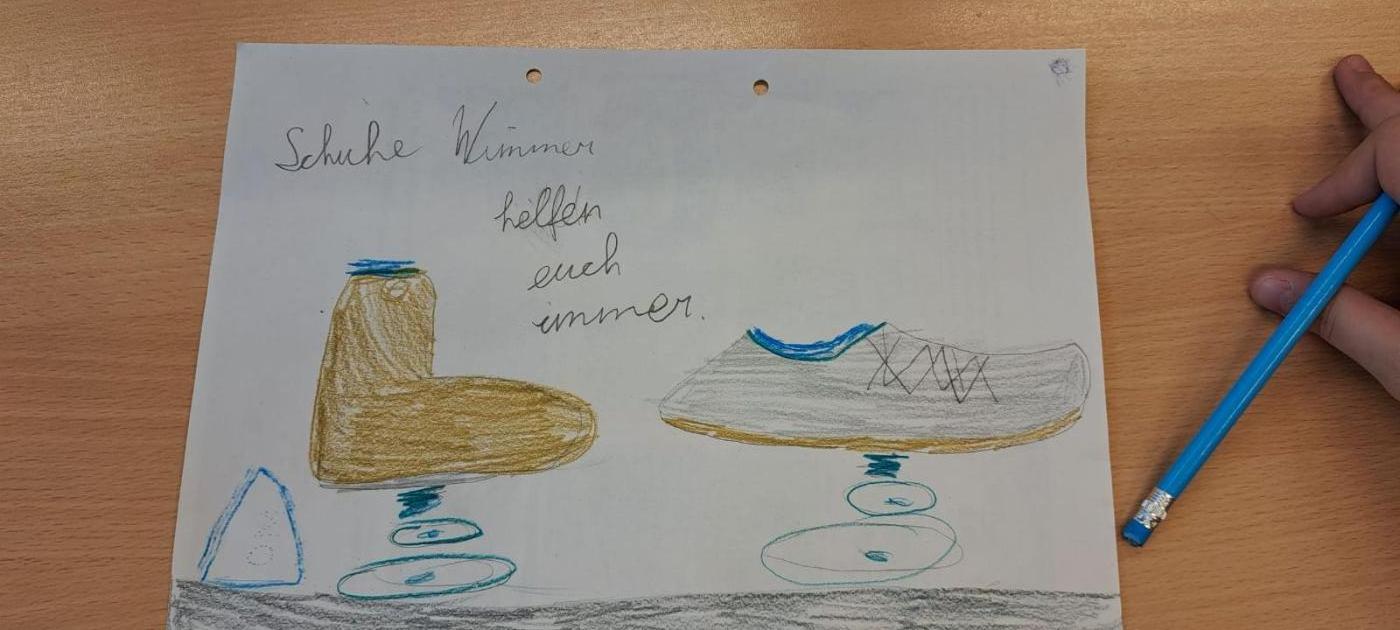 Schuhe Wimmer
helfen
euch
immer.